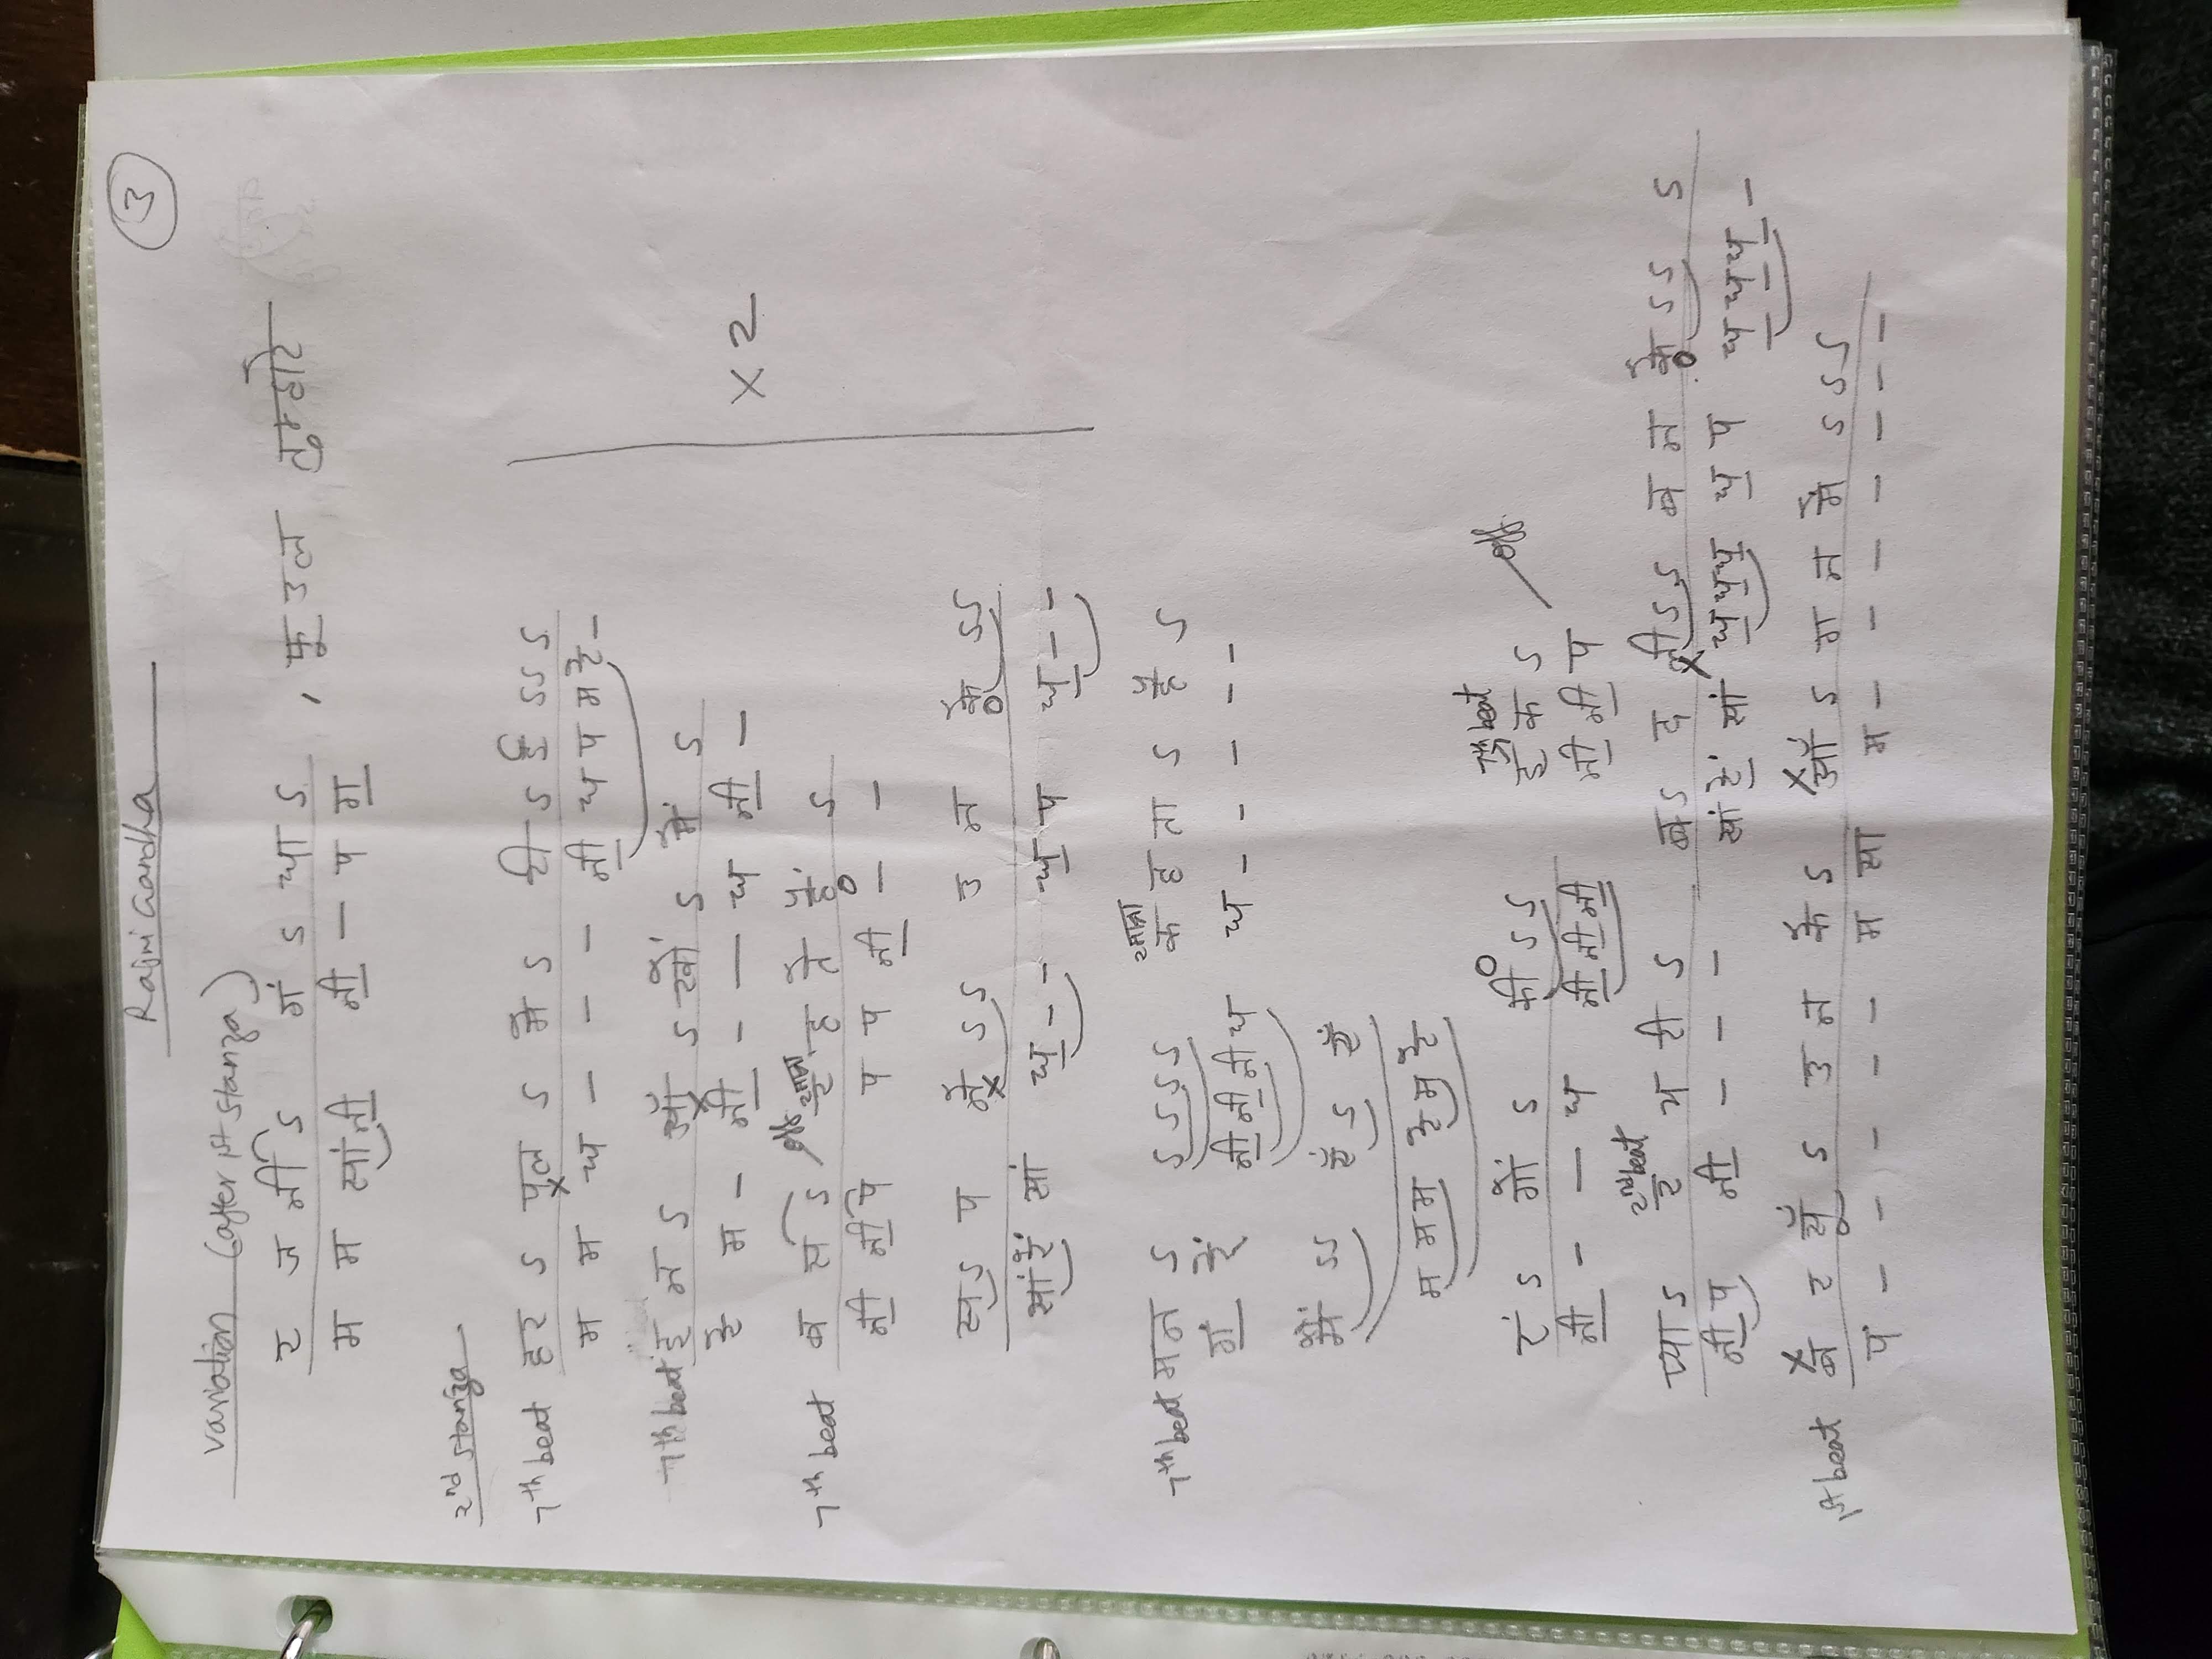 Rajni Gandha
3
Variation (after 1st stanza)
र ज नी ऽ गं ऽ धा ऽ , फू ऽल तुम्हारे
म म सांनी॒ नी॒ – प ग॒
2nd stanza
7th beat हर ऽ पल ऽ मे ऽ री ऽ ई ऽऽ ऽ
x
म म ध – – – नी॒ ध प म रे –
7th beat इ न ऽ आँ ऽ खों ऽ में ऽ
x
रे म – नी॒ – – ध नी॒ –
7th beat ब स ऽ off 2मात्रा र ह ते हैं ऽ
o
नी॒ नी॒प प प नी॒ – –
x 2
स ऽ प ने ऽ ऽ उ न के ऽऽ
x o
सां रें सां ध॒ – – ध॒ प ध॒ – –
2मात्रा
7th beat मन ऽ ऽऽऽऽ क ह ता ऽ है ऽ
गं॒ रें नी॒ नी॒ नी॒ ध ध – – – – –
मैं ऽऽ एँ ऽ एँ
म म म रे म रे
o 7th beat off
रं ऽ गों ऽ की ऽ ऽ इ क ऽ
नी॒ – – ध नी॒ नी॒ नी॒ नी॒ नी॒ प
2nd beat
प्या ऽ र भ री ऽ ब ऽ द ली ऽ ऽ ब न के ऽ ऽ ऽ
x o
नी॒ प नी॒ – – – सां रें सां ध॒ ध॒ ध॒ ध॒ प ध॒ ध॒ ध॒ –
x x
1st beat ब र सूँ ऽ उ न के ऽ आँ ऽ ग न में ऽ ऽ ऽ
प – – – – – म सा म – – – – – – –